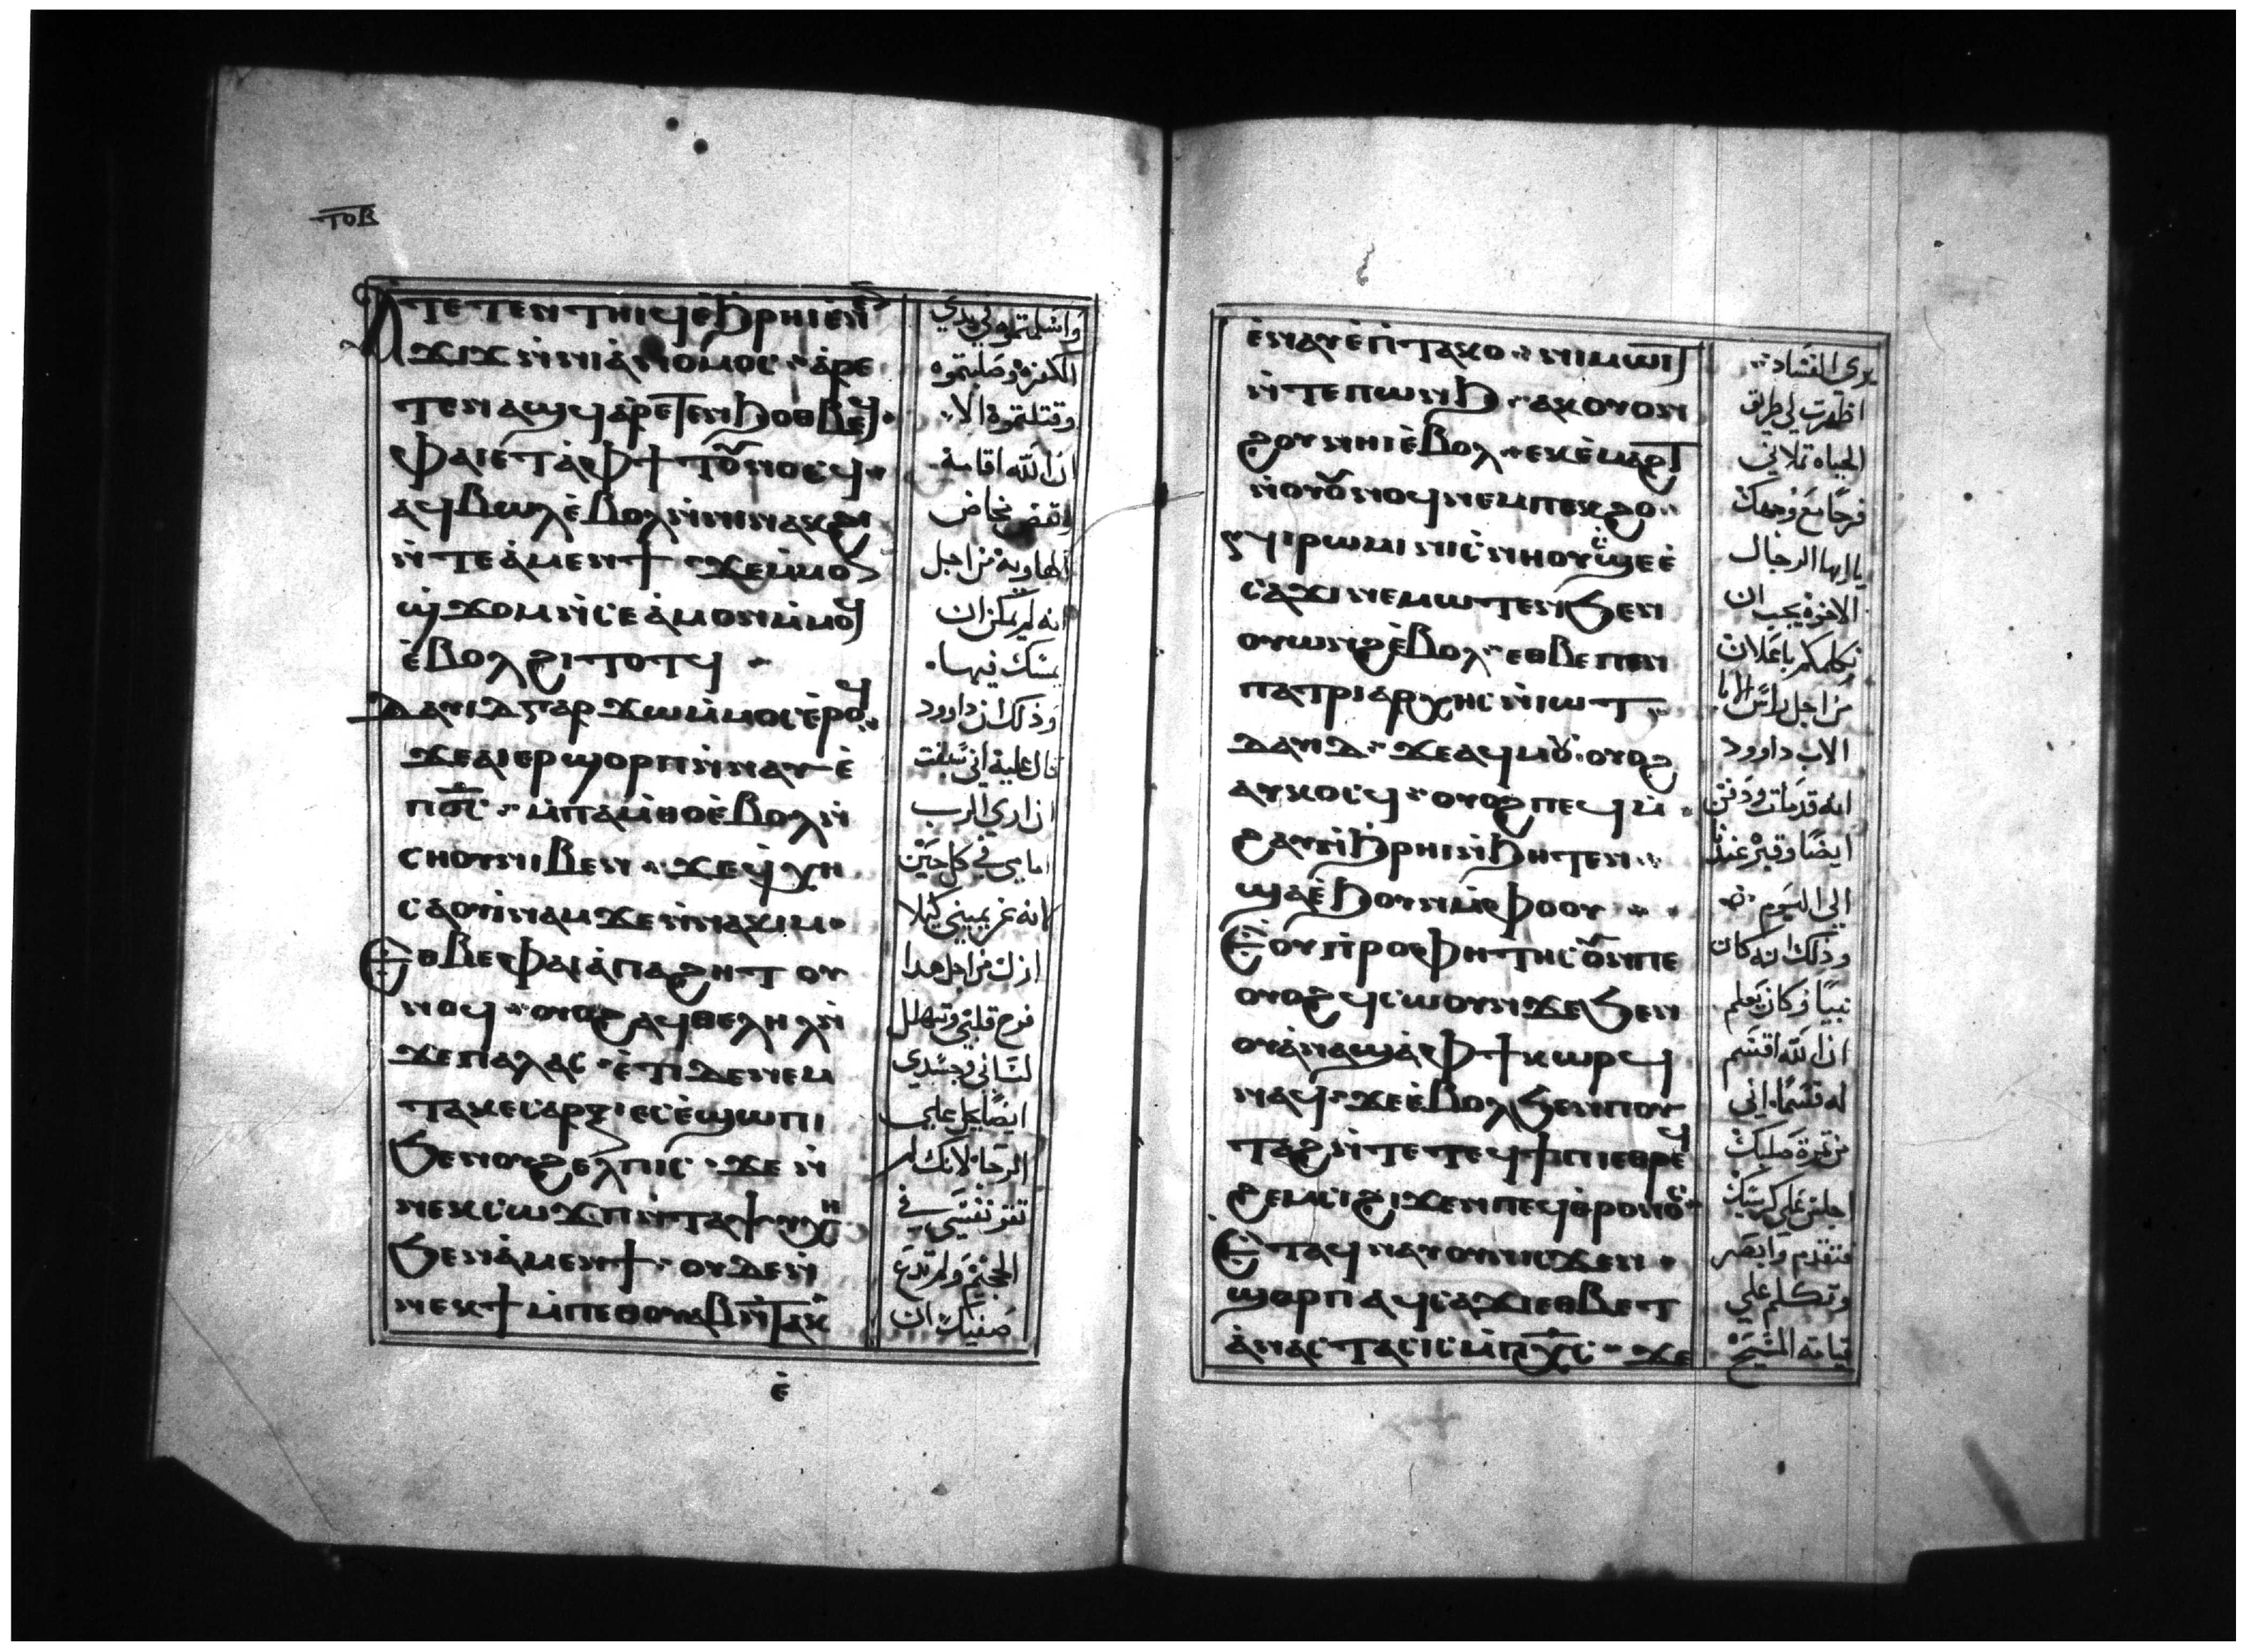 ⲧⲟⲃ
ⲁⲧⲉⲧⲉⲛⲧⲏⲓϥⲉ̀ϧⲣⲏⲓⲉⲛ
ϫⲓϫⲛ̀ⲛⲓⲁ̀ⲛⲟⲙⲟⲥ ⲁ̀ⲣⲉ
ⲧⲉⲛⲁϣϥⲁ̀ⲣⲉⲧⲉⲛϧⲟⲑⲃⲉϥ
ⲫⲁⲓⲉ̀ⲧⲁ̀ⲫϯ ⲧⲟⲩⲛⲟⲥϥ
ⲁϥⲃⲱⲗⲉ̀ⲃⲟⲗⲛ̀ⲛⲓⲛⲁⲕϩⲓ
ⲛ̀ⲧⲉⲁ̀ⲙⲉⲛϯ ϫⲉⲙ̀ⲙⲟ
ϣ̀ϫⲟⲙⲛ̀ⲥⲉⲁ̀ⲙⲟⲛⲓⲙ̀ⲙⲟϥ
ⲉ̀ⲃⲟⲗϩⲓⲧⲟⲧϥ
ⲇⲁⲩⲓⲇⲅⲁⲣϫⲱⲙ̀ⲙⲟⲥⲉ̀ⲣⲟϥ
ϫⲉⲁⲓⲉⲣϣⲟⲣⲡⲛ̀ⲛⲁⲩⲉ̀
ⲡⲟ̅ⲥ̅ ⲙ̀ⲡⲁⲙ̀ⲑⲟⲉ̀ⲃⲟⲗⲛ̀
ⲥⲏⲟⲩⲛⲓⲃⲉⲛ ϫⲉϥ̀ⲭⲏ
ⲥⲁⲟⲩⲓ̀ⲛⲁⲙϫⲉⲛ̀ⲛⲁⲕⲓⲙ
ⲉⲑⲃⲉⲫⲁⲓⲁ̀ⲡⲁϩⲏⲧ ⲟⲩ
ⲛⲟϥ ⲟⲩⲟϩⲁϥⲑⲉⲗⲏⲗⲛ̀
ϫⲉⲡⲁⲗⲁⲥ ⲉ̀ⲧⲓⲇⲉⲛⲉⲙ
ⲧⲁⲕⲉⲥⲁⲣⲝ ⲉⲥⲉ̀ϣⲱⲡⲓ
ϧⲉⲛⲟⲩϩⲉⲗⲡⲓⲥ ϫⲉ ⲛ̀
ⲛⲉⲕⲥⲱϫⲡⲛ̀ⲧⲁⲯⲩⲭⲏ
ϧⲉⲛⲁ̀ⲙⲉⲛϯ ⲟⲩⲇⲉⲛ̀
ⲛⲉⲕϯ ⲙ̀ⲡⲉⲑⲟⲩⲁⲃⲛ̀ⲧⲁⲕ
ⲉ̀
واسلمتموه في يدي
الكفره وصلبتموه
وقتلتموه الا
ان الله اقامه
ونقض مخاض
الهاوية من اجل
انه لم يمكن ان
يمسك فيها
وذلك ان داوود
قال عليه اني سبقت
ان اري الرب
امامي في كل حين
لانه عن يميني كيلا
ازل من اجل هدا
فرح قلبي وتهلل
لساني وجسدي
ايضا يحل علي
الرجا لانك لم
تترك نفسي في
الجحيم ولم تدع
صفيك ان
ⲉ̀ⲛⲁⲩⲉ̀ⲡⲧⲁⲕⲟ ⲛⲓⲙⲱⲓⲧ
ⲛ̀ⲧⲉⲡⲱⲛϧ ⲁⲕⲟⲩⲟⲛ
ϩⲟⲩⲛⲏⲓⲉ̀ⲃⲟⲗ ⲉⲕⲉ̀ⲙⲁϩⲧ
ⲛ̀ⲟⲩⲟⲩⲛⲟϥⲛⲉⲙⲡⲉⲕϩⲟ
ⲛⲓⲣⲱⲙⲓⲛⲓⲥ̀ⲛⲏⲟⲩⲥ̀ϣⲉⲉ̀
ⲥⲁϫⲓⲛⲉⲙⲱⲧⲉⲛϧⲉⲛ
ⲟⲩⲱⲛϩⲉ̀ⲃⲟⲗ ⲉⲑⲃⲉⲡⲉⲛ
ⲡⲁⲧⲣⲓⲁⲣⲭⲏⲥⲛ̀ⲓⲱⲧ
ⲇⲁⲩⲇ ϫⲉⲁϥⲙⲟⲩ ⲟⲩⲟϩ
ⲁⲩⲕⲟⲥϥ ⲟⲩⲟϩⲡⲉϥⲙ̀
ϩⲁⲩⲛ̀ϧⲣⲏⲓⲛ̀ϧⲏⲧⲉⲛ
ϣⲁⲉ̀ϧⲟⲩⲛⲙ̀ⲫⲟⲟⲩ
ⲉⲟⲩⲡ̀ⲣⲟⲫⲏⲧⲏⲥⲟⲩⲛⲡⲉ
ⲟⲩⲟϩϥⲥⲱⲟⲩⲛϫⲉϧⲉⲛ
ⲟⲩⲁ̀ⲛⲁϣⲁ̀ⲫϯⲕⲱⲣϥ
ⲛⲁϥ ϫⲉⲉ̀ⲃⲟⲗϧⲉⲛⲡⲟⲩ
ⲧⲁϩⲛ̀ⲧⲉⲧⲉϥϯⲡⲓⲉⲑⲣⲉϥ
ϩⲉⲙⲥⲓϩⲓϫⲉⲛⲡⲉϥⲑ̀ⲣⲟⲛⲟⲥ
ⲉⲧⲁϥⲛⲁⲩⲟⲩⲛⲓⲥϫⲉⲛ
ϣⲟⲣⲡ ⲁϥⲥⲁϫⲓⲉⲑⲃⲉⲧ
ⲁ̀ⲛⲁⲥⲧⲁⲥⲓⲥⲙ̀ⲡⲭ̅ⲥ̅ ϫⲉ
يرى الفساد
اظهرت لي طريق
الحياه تملاني
فرحا مع وجهك
يا ايها الرجال
الاخوه يجب ان
نكلمكم باعلان
من اجل راس الابا
الاب داوود
انه قد مات ودفن
ايضا وقبره عندنا
الي اليوم
وذلك انه كان
نبيا وكان يعلم
ان الله اقسم
له قسما اني
من ثمرة صلبك
اجلس علي كرسيك
فتقدم وابصر
وتكلم علي
قيامه المسيح